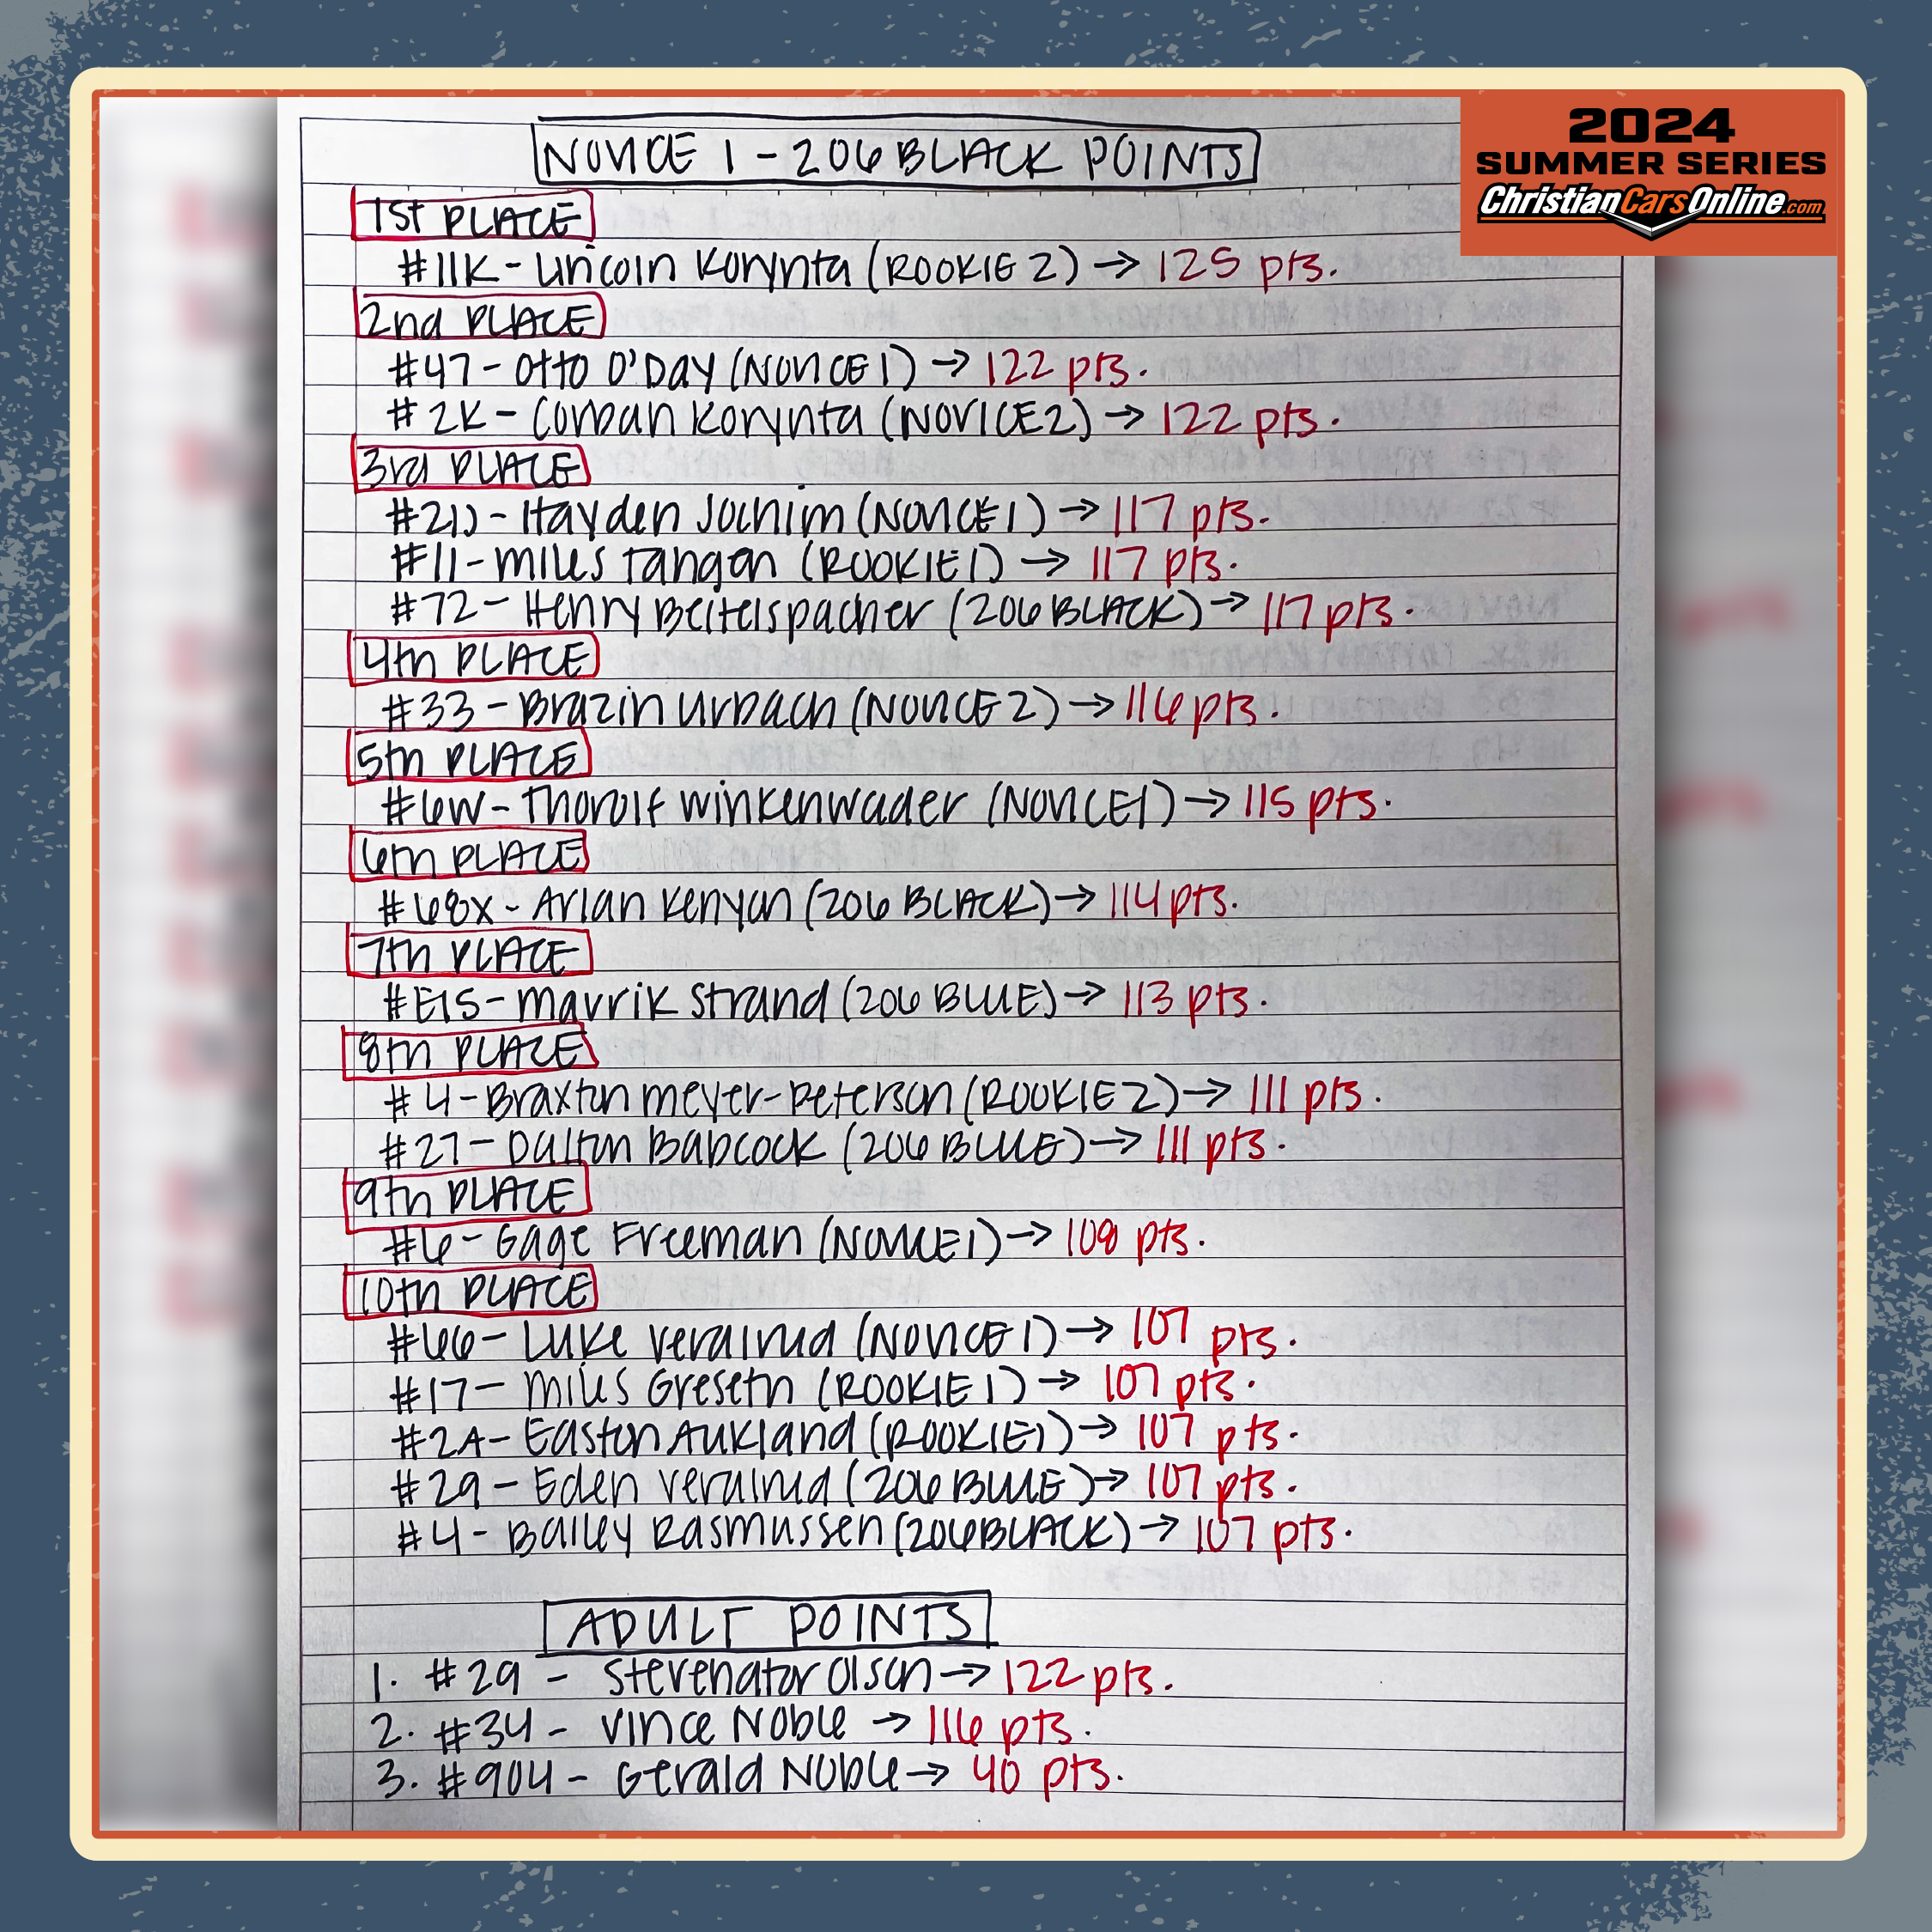 NOVICE 1 - 206 BLACK POINTS
2024
SUMMER SERIES
ChristianCarsOnline.com
1st PLACE
#11K - Lincoln Korynta (ROOKIE 2) → 125 pts.
2nd PLACE
#47 - Otto O'Day (NOVICE 1) → 122 pts.
#2K - Corban Korynta (NOVICE 2) → 122 pts.
3rd PLACE
#21J - Hayden Jochim (NOVICE 1) → 117 pts.
#11 - Miles Tangen (ROOKIE 1) → 117 pts.
#72 - Henry Beitelspacher (206 BLACK) → 117 pts.
4th PLACE
#33 - Brazin Urbach (NOVICE 2) → 116 pts.
5th PLACE
#6W - Thorolf Winkenwader (NOVICE 1) → 115 pts.
6th PLACE
#68X - Arlan Kenyon (206 BLACK) → 114 pts.
7th PLACE
#E15 - Mavrik Strand (206 BLUE) → 113 pts.
8th PLACE
#4 - Braxton Meyer-Peterson (ROOKIE 2) → 111 pts.
#27 - Dalton Babcock (206 BLUE) → 111 pts.
9th PLACE
#6 - Gage Freeman (NOVICE 1) → pts.
10th PLACE
#66 - Luke Veralrud (NOVICE 1) → 107 pts.
#17 - Miles Greseth (ROOKIE 1) → 107 pts.
#2A - Easton Aukland (ROOKIE 1) → 107 pts.
#29 - Eden Veralrud (206 BLUE) → 107 pts.
#4 - Bailey Rasmussen (206 BLACK) → 107 pts.
ADULT POINTS
1. #29 - Stevenator Olson → 122 pts.
2. #34 - Vince Noble → 116 pts.
3. #904 - Gerald Noble → 40 pts.